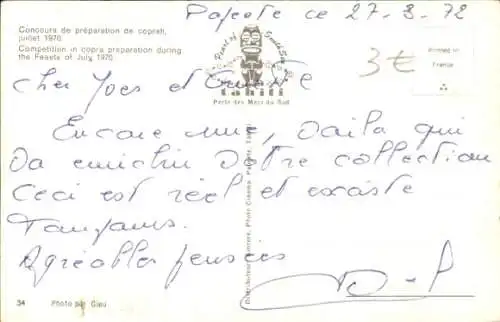 Papeete ce 27-3-72
Concours de préparation de coprah,
juillet 1970.
Competition in copra preparation during
the Feasts of July 1970.
Pearl of South Sea
tahiti
Perle des Mers du Sud
3€
Printed in
France
Cher Yves et
Encore une, voila qui
va enrichir votre collection
Ceci est réel et existe
Toujours.
Agréables pensées
D-P
Photo Cinema Papeete, Tahiti
34 Photo par Gieu